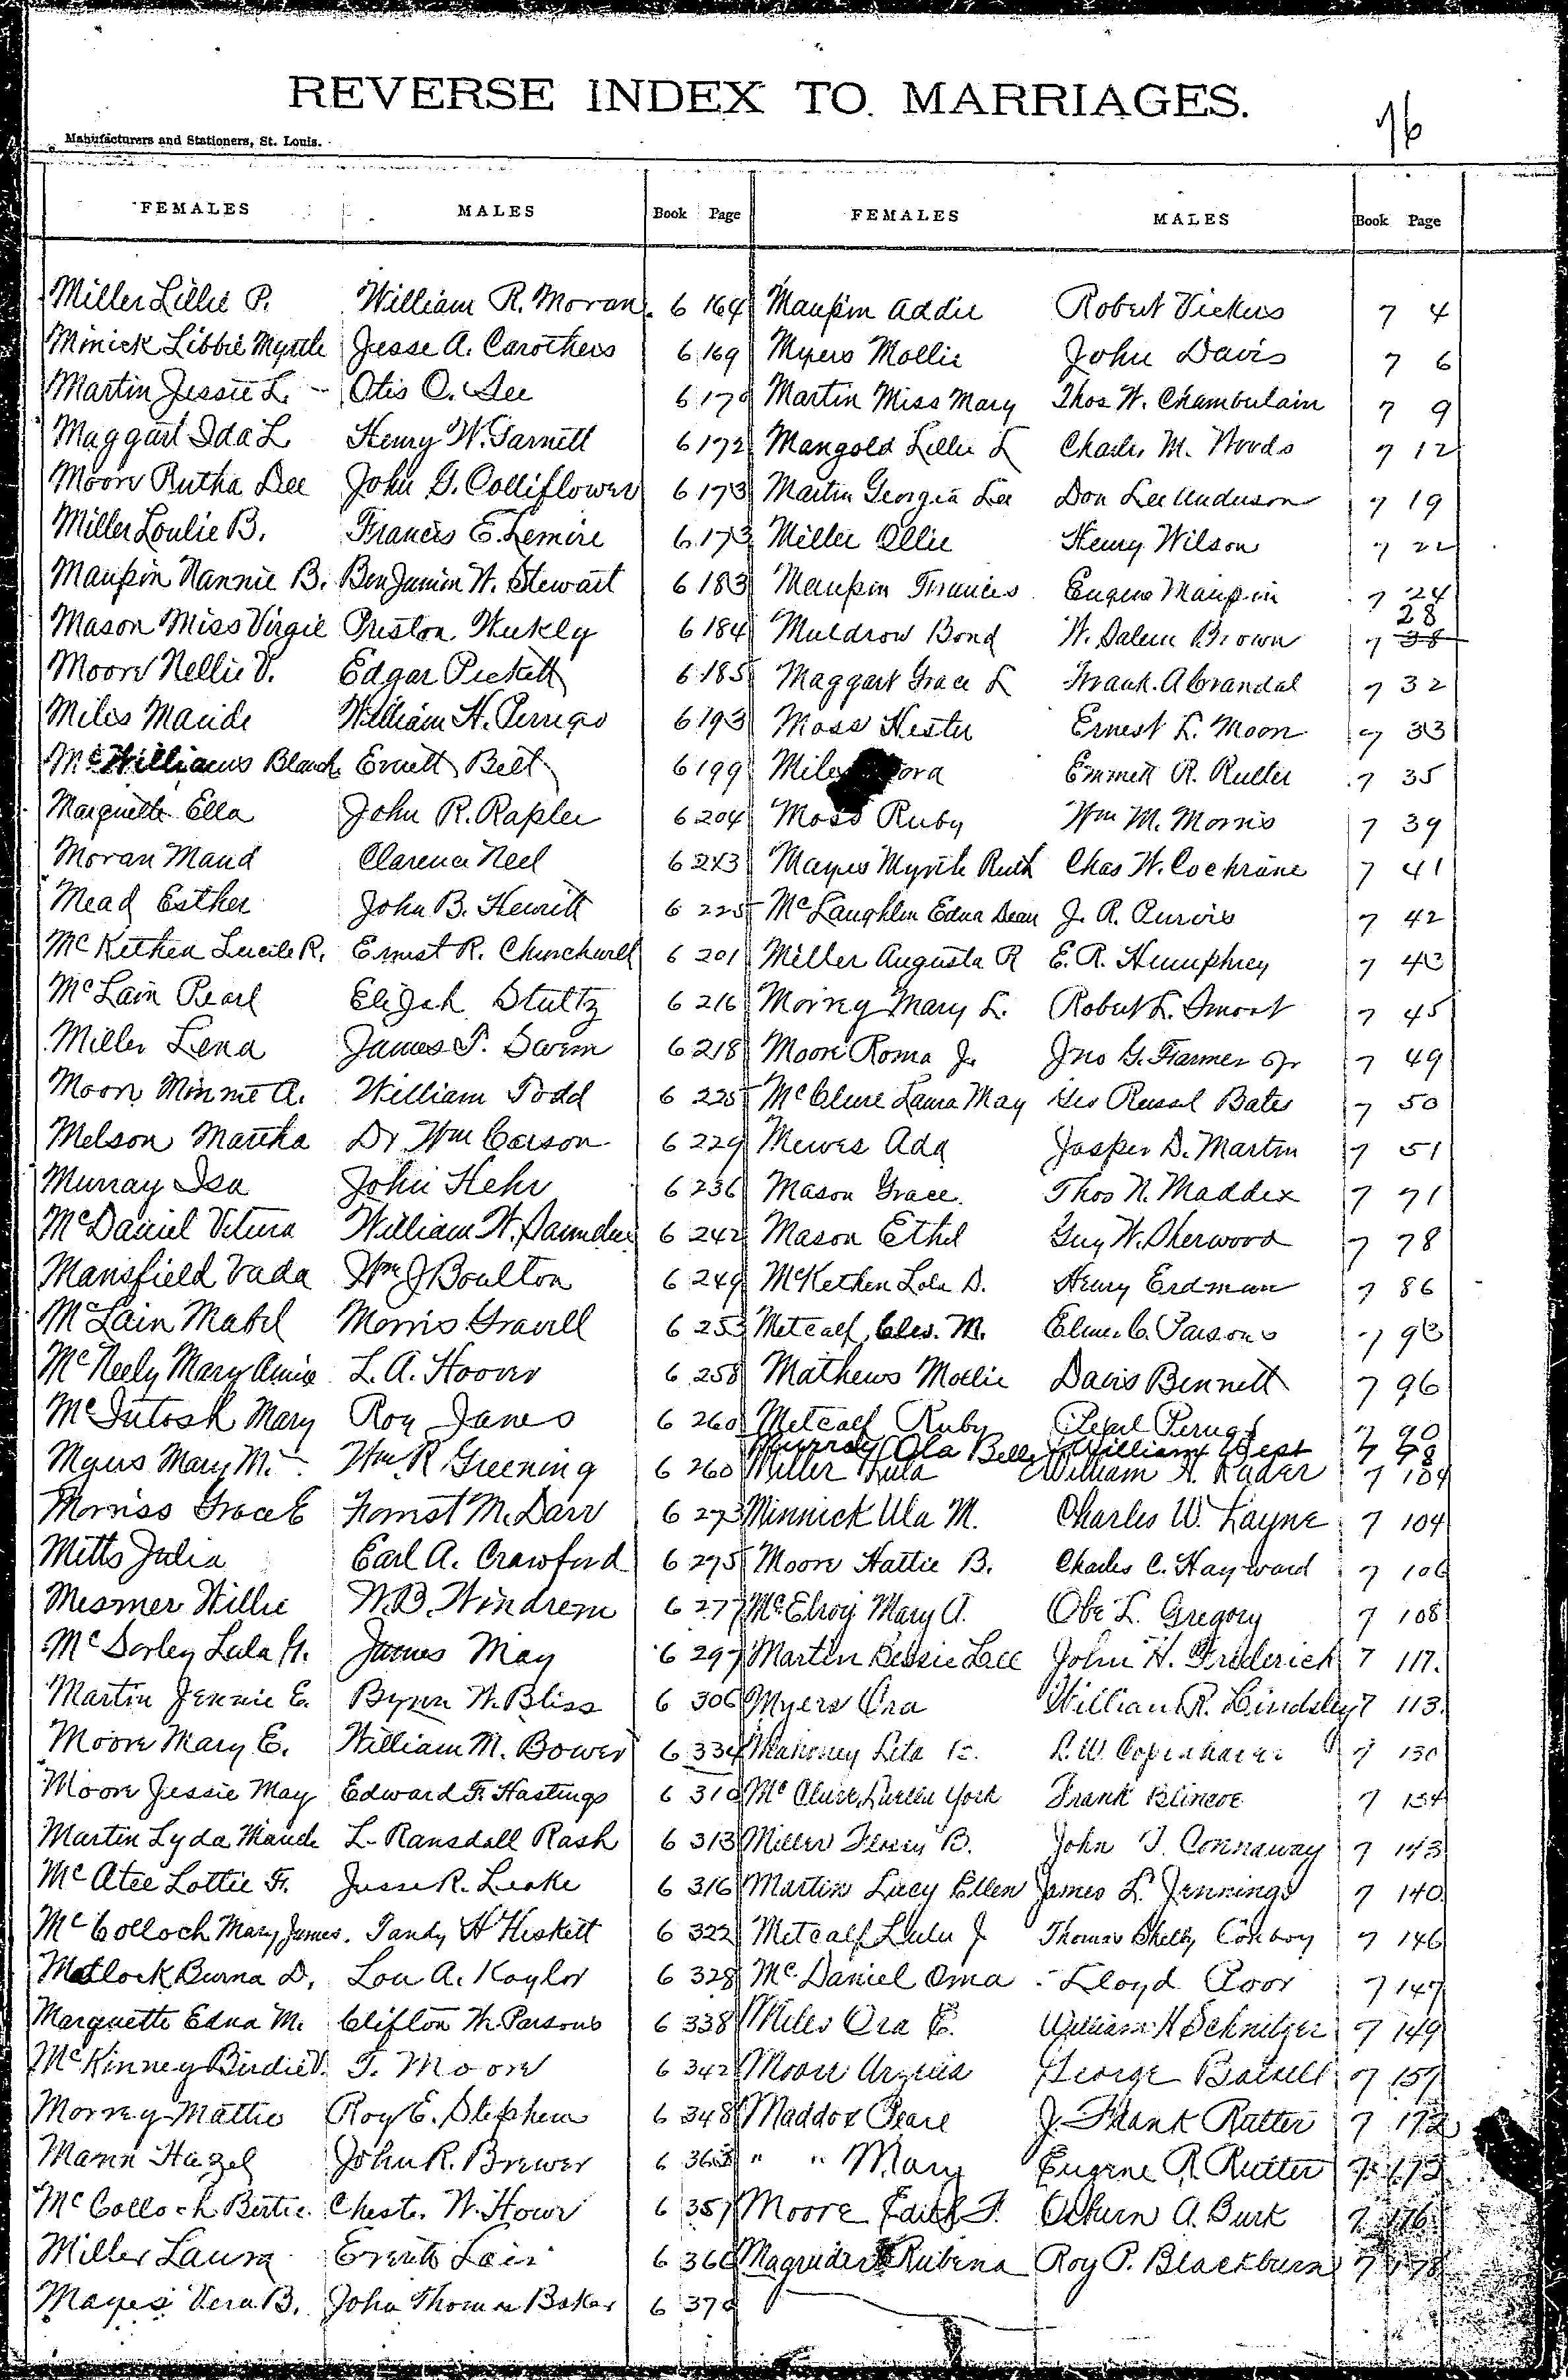 REVERSE INDEX TO MARRIAGES.
76
Manufacturers and Stationers, St. Louis.
FEMALES MALES Book Page FEMALES MALES Book Page
Miller Lillie P. William R. Moran. 6 164 Maupin Addie Robert Vickers 7 4
Minick Libbie Myrtle Jesse A. Carothers 6 169 Myers Mollie John Davis 7 6
Martin Jessie L. Otis O. See 6 170 Martin Miss Mary Thos W. Chamberlain 7 9
Maggart Ida L Henry W. Garnett 6 172 Mangold Lillie L Charles M. Woods 7 12
Moore Rutha Dee John G. Colliflower 6 173 Martin Georgia Lee Don Lee Anderson 7 19
Miller Loulie B. Francis E. Lemire 6 173 Miller Ollie Henry Wilson 7 22
Maupin Nannie B. Benjamin W. Stewart 6 183 Maupin Frances Eugene Maupin 7 24
Mason Miss Virgie Preston Weekly 6 184 Muldrow Bond W. Salem Brown 7 28
Moore Nellie V. Edgar Pickett 6 185 Maggart Grace L Frank A Crandal 7 32
Miles Maude William H. Perrigo 6 193 Moss Hester Ernest L. Moon 7 33
McWilliams Blanch Everett Belt 6 199 Miles Emmett R. Rutter 7 35
Marquette Ella John R. Rapler 6 204 Moss Ruby Wm M. Morris 7 39
Moran Maud Clarence Neel 6 Mayes Myrtle Ruth Chas W. Cochrane 7 41
Mead Esther John B. Hewitt 6 225 McLaughlin Edna Dean J. R. Purvis 7 42
McKethen Lucile R. Ernest R. Churchwell 6 201 Miller Augusta R E. R. Humphrey 7 43
McLain Pearl Elijah Stultz 6 216 Morrey Mary L. Robert L. Smoot 7 45
Miller Lena James T. Swim 6 218 Moore Roma J. Jno G. Farmer Jr 7 49
Moon Minnie A. William Todd 6 225 McClure Laura May Geo Russel Bates 7 50
Melson Martha Dr Wm Carson 6 229 Mewes Ada Jasper D. Martin 7 51
Murray Isa John Hehr 6 236 Mason Grace Thos N. Maddex 7 71
McDaniel Vetura William W. Saunders 6 242 Mason Ethel Guy W. Sherwood 7 78
Mansfield Vada Wm J Boulton 6 249 McKethen Lola D. Henry Erdman 7 86
McLain Mabel Morris Gravell 6 253 Metcalf, Cleo. M. Elmer C. Parsons 7 93
McNeely Mary Annie L. A. Hoover 6 258 Mathews Mollie Davis Bennett 7 96
McIntosh Mary Roy Janes 6 260 Metcalf Ruby Pearl Perugo 7 90
Murray Ola Belle William West 7 98
Myers Mary M. Wm R Greening 6 260 Miller Lula William H. Rader 7 104
Morriss Grace E Forrest M. Darr 6 273 Minnick Ula M. Charles W. Layne 7 104
Mitts Julia Earl A. Crawford 6 275 Moore Hattie B. Charles C. Hayward 7 106
Mesmer Willie W. B. Windrem 6 277 McElroy Mary A. Obe L. Gregory 7 108
McSorley Lula H. James May 6 297 Martin Bessie Lee John H. Frederick 7 117.
Martin Jennie E. Bynn W. Bliss 6 306 Myers Ora William R. Lindsley 7 113.
Moore Mary E. William M. Bower 6 334 Mahoney Leta R. W. Copenhaver 7 130
Moore Jessie May Edward F. Hastings 6 310 McClure York Frank Blincoe 7 134
Martin Lyda Maude L. Ransdall Rash 6 313 Miller Flossy B. John T. Connaway 7 143
McAtee Lottie F. Jesse R. Leake 6 316 Martin Lucy Ellen James L. Jennings 7 140
McColloch Mary James. Tandy H Heskett 6 322 Metcalf Lulu J Thomas Shelby Conboy 7 146
Matlock Burna D. Lou A. Kaylor 6 328 McDaniel Oma Lloyd Poor 7 147
Marquette Edna M. Clifton W. Parsons 6 338 Miles Ora E. William H Schnitzer 7 149
McKinney Birdie V. T. Moore 6 342 Moore George 7 157
Morrey Mattie Roy E. Stephens 6 348 Maddox Pearl J. Frank Rutter 7 172
Mann Hazel John R. Brewer 6 363 " " Mary Eugene R. Rutter 7 173
McColloch Bertie Chester W. Howe 6 357 Moore Edith F. Osburn A. Burk 7 176
Miller Laura Everett Lair 6 366 Magruder Rubena Roy P. Blackburn 7 178
Mayes Vera B. John Thomas Baker 6 370